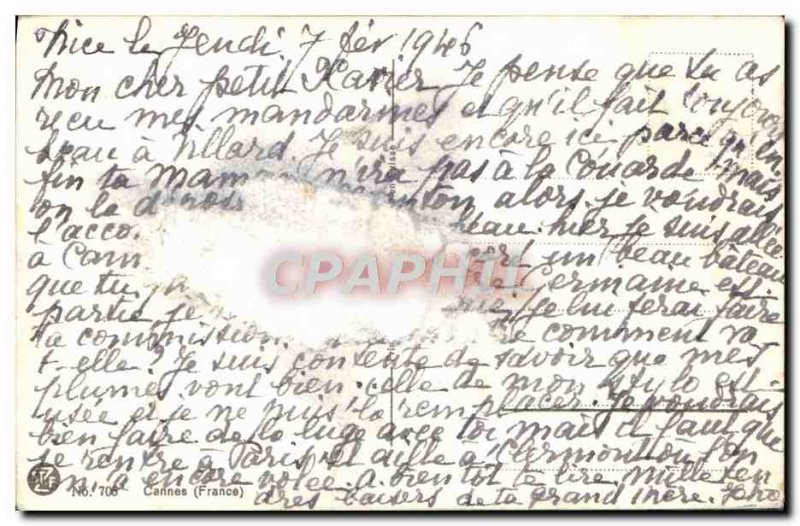 Nice le Jeudi 7 fév 1946
Mon cher petit Xavier. Je pense que tu as
reçu mes mandarines et qu'il fait toujours
beau à Villard. Je suis encore ici parce qu'en
fin ta maman n'ira pas à la Couarde mais
on la alors je voudrais
l'acco hier je suis allée
à Cann un beau bâteau
que tu Germaine est
partie je je lui ferai faire
ta commission. comment va
t-elle? Je suis contente de savoir que mes
plumes vont bien. celle de mon stylo est
usée et je ne puis la remplacer. Je voudrais
bien faire de la luge avec toi mais il faut que
je rentre à Paris et aille à l'on
m'a encore volée. à bientôt te lire. Mille ten
dres baisers de ta grand mère.
No. 706 Cannes (France)
CPAPHIL